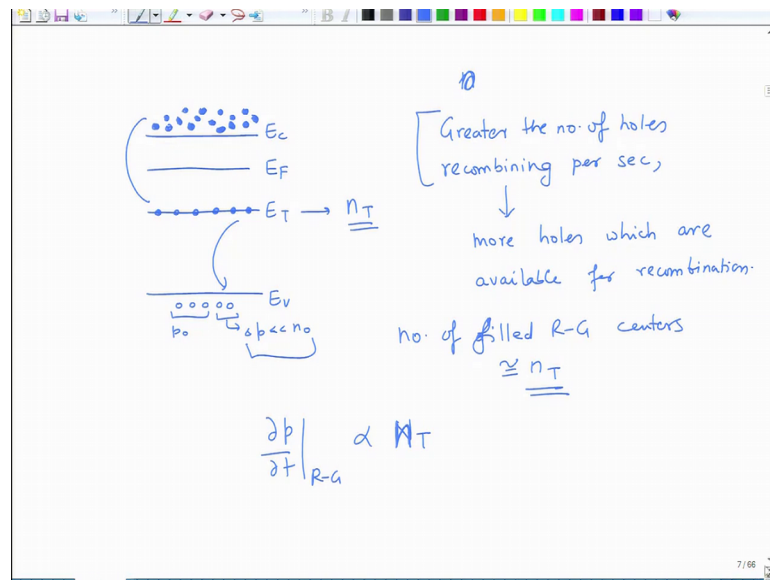 E_C
E_F
E_T → n_T
E_V
p_o
Δp << n_o
Greater the no. of holes
recombining per sec,
↓
more holes which are
available for recombination.
no. of filled R-G centers
≅ n_T
∂p/∂t |R-G ∝ N_T
7 / 66